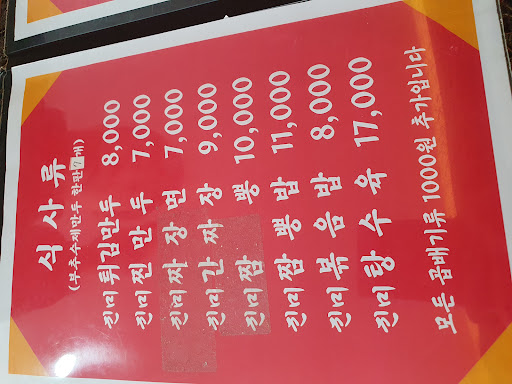 식사류
(부추수제만두 한판7개)
친미튀김만두 8,000
친미찐만두 7,000
친미짜장면 7,000
친미간짜장 9,000
친미짬뽕 10,000
친미짬뽕밥 11,000
친미볶음밥 8,000
친미탕수육 17,000
모든 곱배기류 1000원 추가입니다